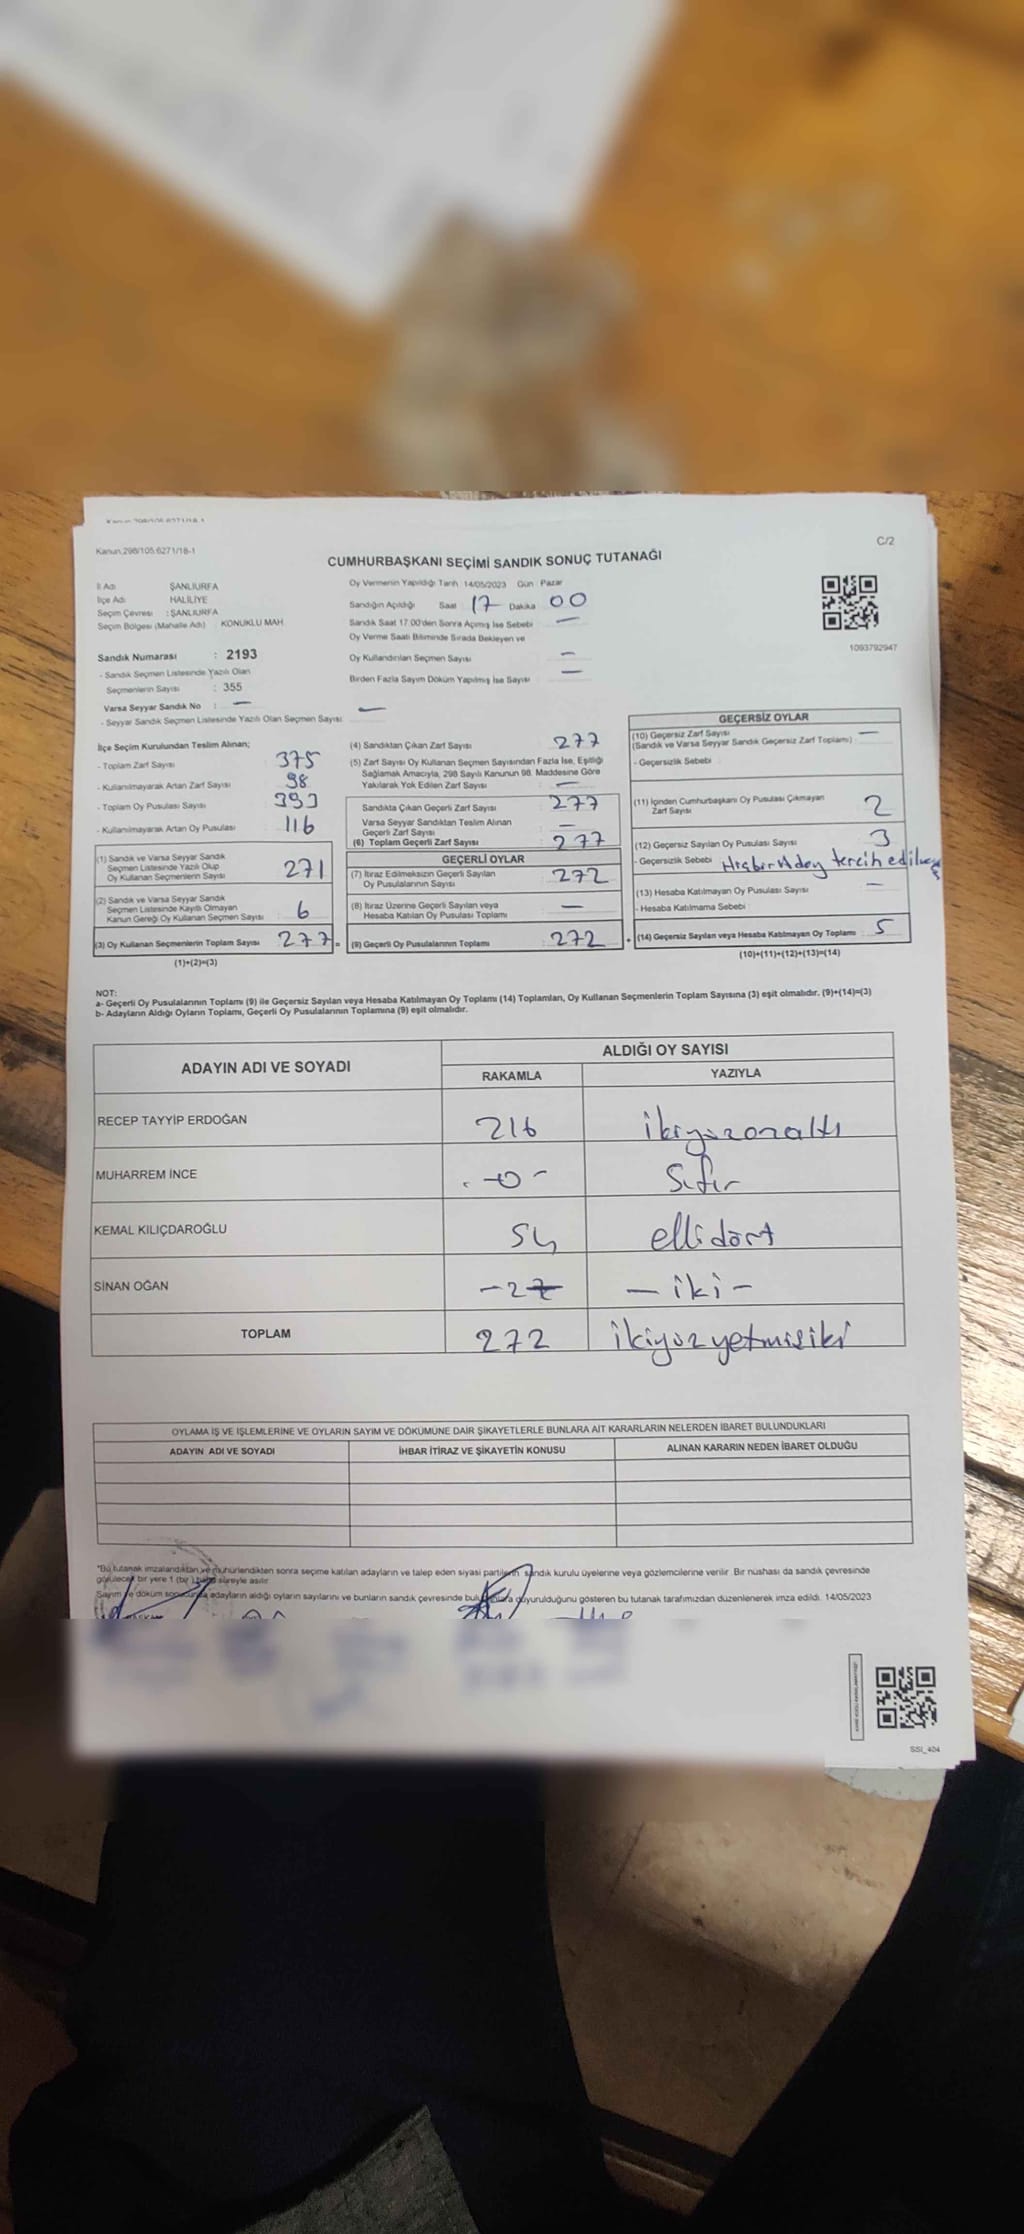 Kanun.298/105.6271/18-1
C/2
CUMHURBAŞKANI SEÇİMİ SANDIK SONUÇ TUTANAĞI
İl Adı ŞANLIURFA
İlçe Adı HALİLİYE
Seçim Çevresi : ŞANLIURFA
Seçim Bölgesi (Mahalle Adı) KONUKLU MAH
Sandık Numarası : 2193
- Sandık Seçmen Listesinde Yazılı Olan
Seçmenlerin Sayısı : 355
Varsa Seyyar Sandık No : —
- Seyyar Sandık Seçmen Listesinde Yazılı Olan Seçmen Sayısı —
Oy Vermenin Yapıldığı Tarih 14/05/2023 Gün Pazar
Sandığın Açıldığı Saat 17 Dakika 00
Sandık Saat 17.00'den Sonra Açmış İse Sebebi —
Oy Verme Saati Bitiminde Sırada Bekleyen ve
Oy Kullandırılan Seçmen Sayısı —
Birden Fazla Sayım Döküm Yapılmış İse Sayısı —
1093792947
İlçe Seçim Kurulundan Teslim Alınan;
- Toplam Zarf Sayısı 375
- Kullanılmayarak Artan Zarf Sayısı 98
- Toplam Oy Pusulası Sayısı 393
- Kullanılmayarak Artan Oy Pusulası 116
(1) Sandık ve Varsa Seyyar Sandık
Seçmen Listesinde Yazılı Olup
Oy Kullanan Seçmenlerin Sayısı 271
(2) Sandık ve Varsa Seyyar Sandık
Seçmen Listesinde Kayıtlı Olmayan
Kanun Gereği Oy Kullanan Seçmen Sayısı 6
(3) Oy Kullanan Seçmenlerin Toplam Sayısı 277 =
(1)+(2)=(3)
(4) Sandıktan Çıkan Zarf Sayısı 277
(5) Zarf Sayısı Oy Kullanan Seçmen Sayısından Fazla İse, Eşitliği
Sağlamak Amacıyla, 298 Sayılı Kanunun 98. Maddesine Göre
Yakılarak Yok Edilen Zarf Sayısı : —
Sandıkta Çıkan Geçerli Zarf Sayısı : 277
Varsa Seyyar Sandıktan Teslim Alınan
Geçerli Zarf Sayısı : —
(6) Toplam Geçerli Zarf Sayısı : 277
GEÇERLİ OYLAR
(7) İtiraz Edilmeksizin Geçerli Sayılan
Oy Pusulalarının Sayısı : 272
(8) İtiraz Üzerine Geçerli Sayılan veya
Hesaba Katılan Oy Pusulası Toplamı : —
(9) Geçerli Oy Pusulalarının Toplamı : 272 +
GEÇERSİZ OYLAR
(10) Geçersiz Zarf Sayısı —
(Sandık ve Varsa Seyyar Sandık Geçersiz Zarf Toplamı) :
- Geçersizlik Sebebi :
(11) İçinden Cumhurbaşkanı Oy Pusulası Çıkmayan
Zarf Sayısı 2
(12) Geçersiz Sayılan Oy Pusulası Sayısı : 3
- Geçersizlik Sebebi : Hiçbir Aday tercih
(13) Hesaba Katılmayan Oy Pusulası Sayısı : —
- Hesaba Katılmama Sebebi :
(14) Geçersiz Sayılan veya Hesaba Katılmayan Oy Toplamı : 5
(10)+(11)+(12)+(13)=(14)
NOT:
a- Geçerli Oy Pusulalarının Toplamı (9) ile Geçersiz Sayılan veya Hesaba Katılmayan Oy Toplamı (14) Toplamları, Oy Kullanan Seçmenlerin Toplam Sayısına (3) eşit olmalıdır. (9)+(14)=(3)
b- Adayların Aldığı Oyların Toplamı, Geçerli Oy Pusulalarının Toplamına (9) eşit olmalıdır.
ADAYIN ADI VE SOYADI ALDIĞI OY SAYISI
RAKAMLA YAZIYLA
RECEP TAYYİP ERDOĞAN 216 ikiyüzonaltı
MUHARREM İNCE -0- Sıfır
KEMAL KILIÇDAROĞLU 54 ellidört
SİNAN OĞAN -2- - iki -
TOPLAM 272 ikiyüzyetmişiki
OYLAMA İŞ VE İŞLEMLERİNE VE OYLARIN SAYIM VE DÖKÜMÜNE DAİR ŞİKAYETLERLE BUNLARA AİT KARARLARIN NELERDEN İBARET BULUNDUKLARI
ADAYIN ADI VE SOYADI İHBAR İTİRAZ VE ŞİKAYETİN KONUSU ALINAN KARARIN NEDEN İBARET OLDUĞU
*Bu tutanak imzalandıktan ve mühürlendikten sonra seçime katılan adayların ve talep eden siyasi partilerin sandık kurulu üyelerine veya gözlemcilerine verilir. Bir nüshası da sandık çevresinde
görülecek bir yere 1 (bir) hafta süreyle asılır.
Sayım ve döküm sonucunda adayların aldığı oyların sayılarını ve bunların sandık çevresinde bulunanlara duyurulduğunu gösteren bu tutanak tarafımızdan düzenlenerek imza edildi. 14/05/2023
SSI_404